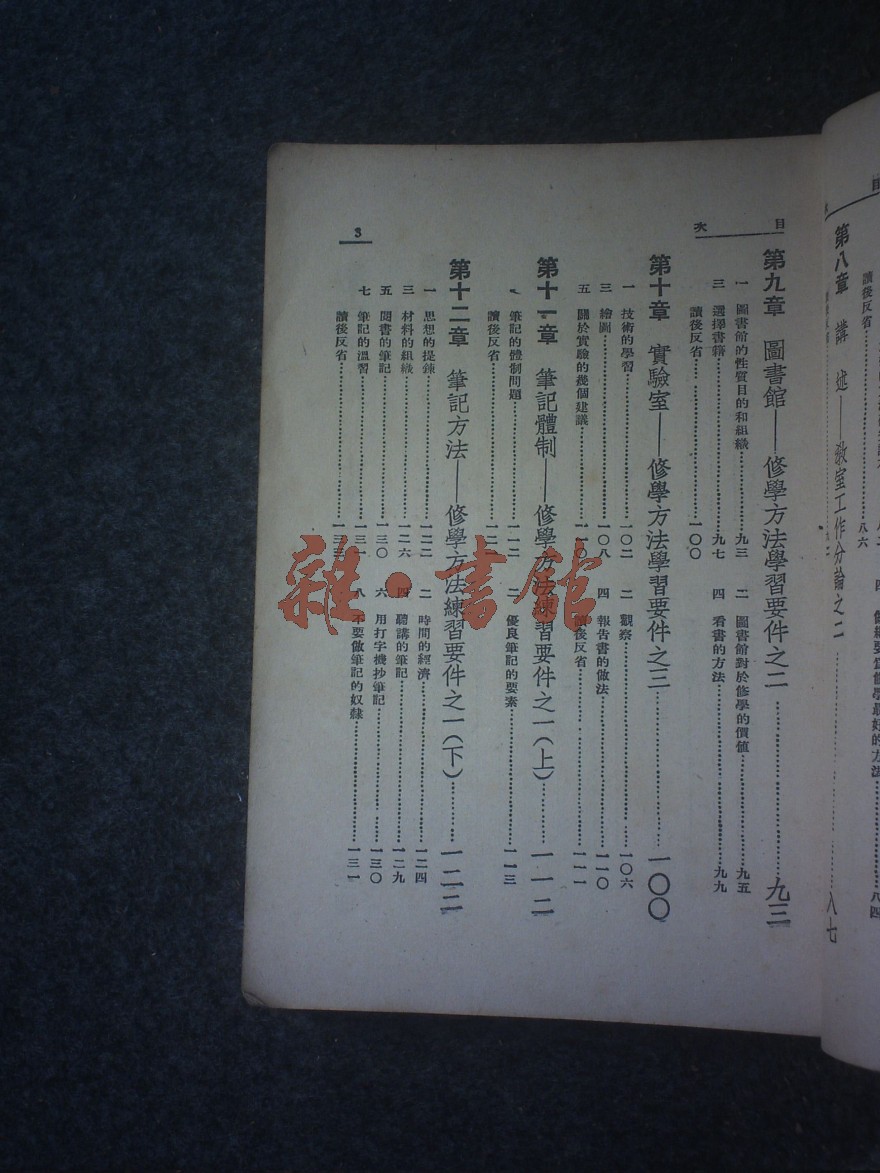 讀後反省……八六
第八章 講述——教室工作分論之二……八七
目次
第九章 圖書館——修學方法學習要件之二……九三
一 圖書館的性質目的和組織……九三 二 圖書館對於修學的價値……九五
三 選擇書籍……九七 四 看書的方法……九九
讀後反省……一〇〇
第十章 實驗室——修學方法學習要件之三……一〇〇
一 技術的學習……一〇二 二 觀察……一〇六
三 繪圖……一〇八 四 報告書的做法……一一〇
五 關於實驗的幾個建議……一一〇 讀後反省……一一一
第十一章 筆記體制——修學方法練習要件之一(上)……一一二
一 筆記的體制問題……一一二 二 優良筆記的要素……一一三
讀後反省……一二一
第十二章 筆記方法——修學方法練習要件之一(下)……一二二
一 思想的提鍊……一二二 二 時間的經濟……一二四
三 材料的組織……一二六 四 聽講的筆記……一二九
五 閱書的筆記……一三〇 六 用打字機抄筆記……一三〇
七 筆記的溫習……一三一 八 不要做筆記的奴隸……一三一
讀後反省……一三三
3
雜·書館